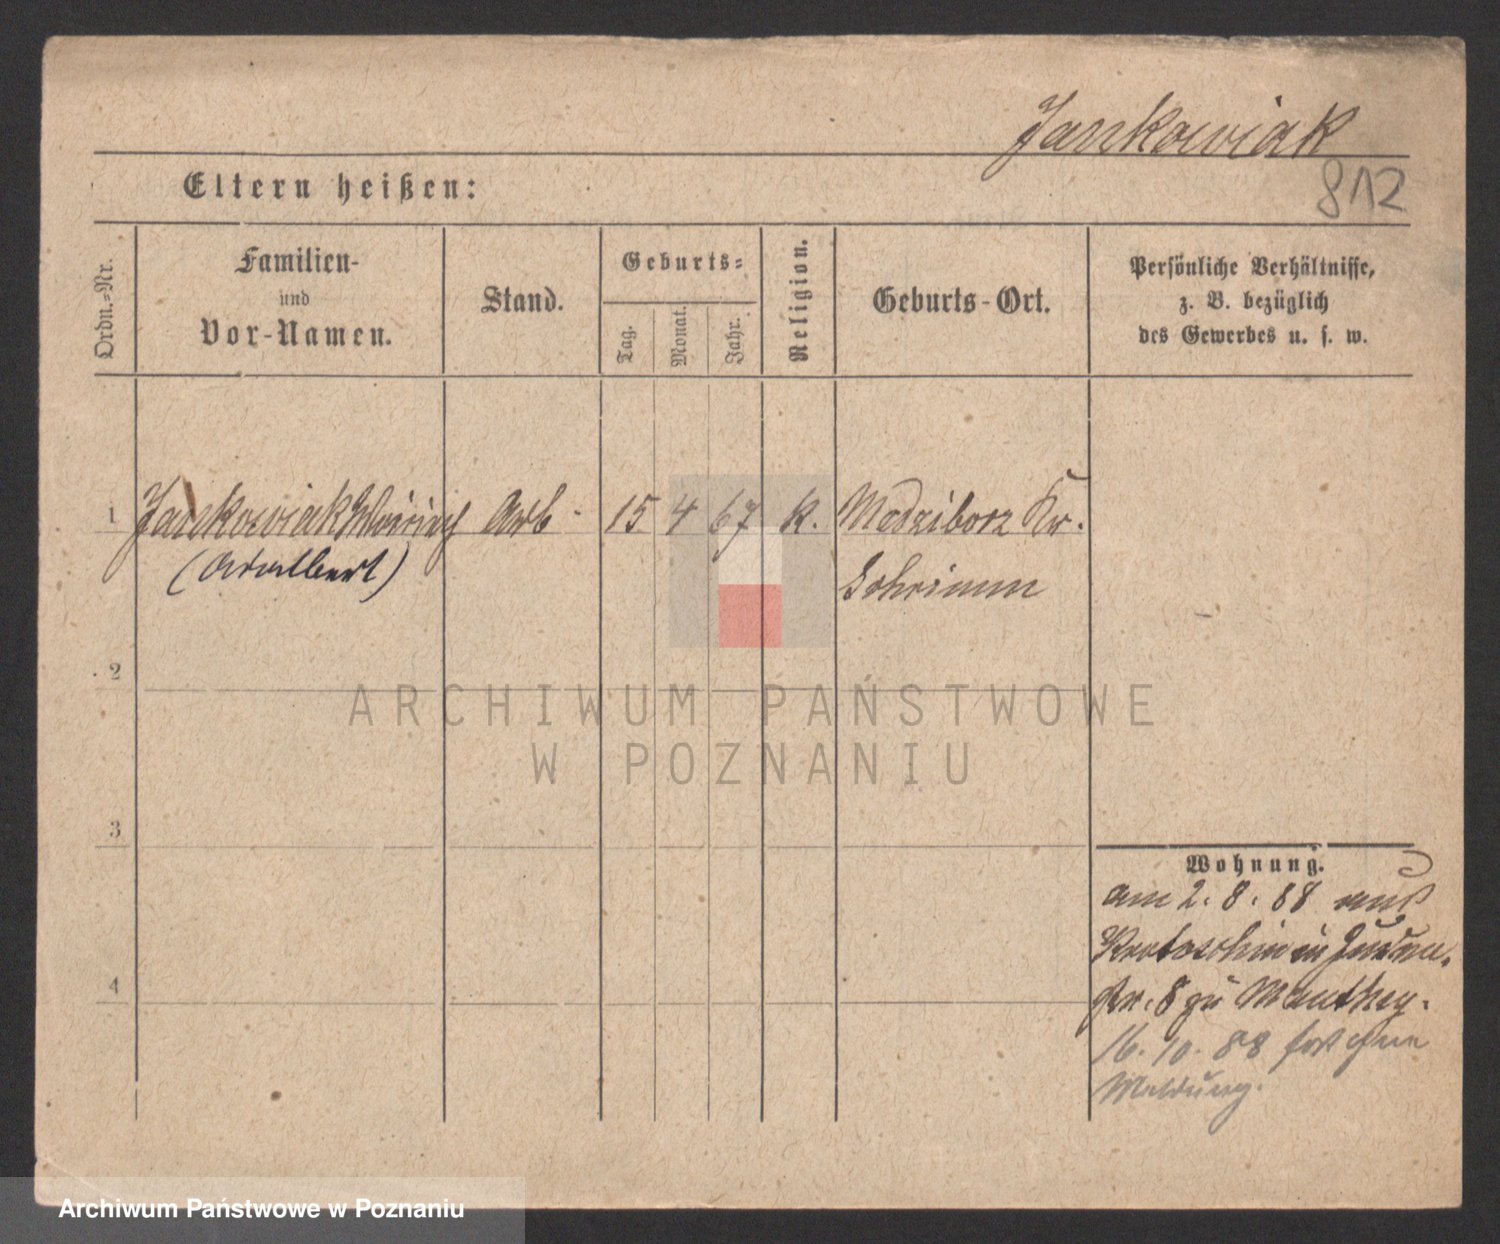 Jankowiak
812
Eltern heißen:
Ordn.-Nr.
Familien-
und
Vor-Namen.
Stand.
Geburts-
Tag.
Monat.
Jahr.
Religion.
Geburts-Ort.
Persönliche Verhältnisse,
z. B. bezüglich
des Gewerbes u. s. w.
1 Jankowiak Arb 15 4 67 k. Modziborz Kr.
(Adalbert) Schrimm
2
ARCHIWUM PAŃSTWOWE
W POZNANIU
3
4
Wohnung.
am 2. 8. 88 aus
Krotoschin in
8 zu Manthey.
16. 10. 88 fort ohne
Meldung.
Archiwum Państwowe w Poznaniu